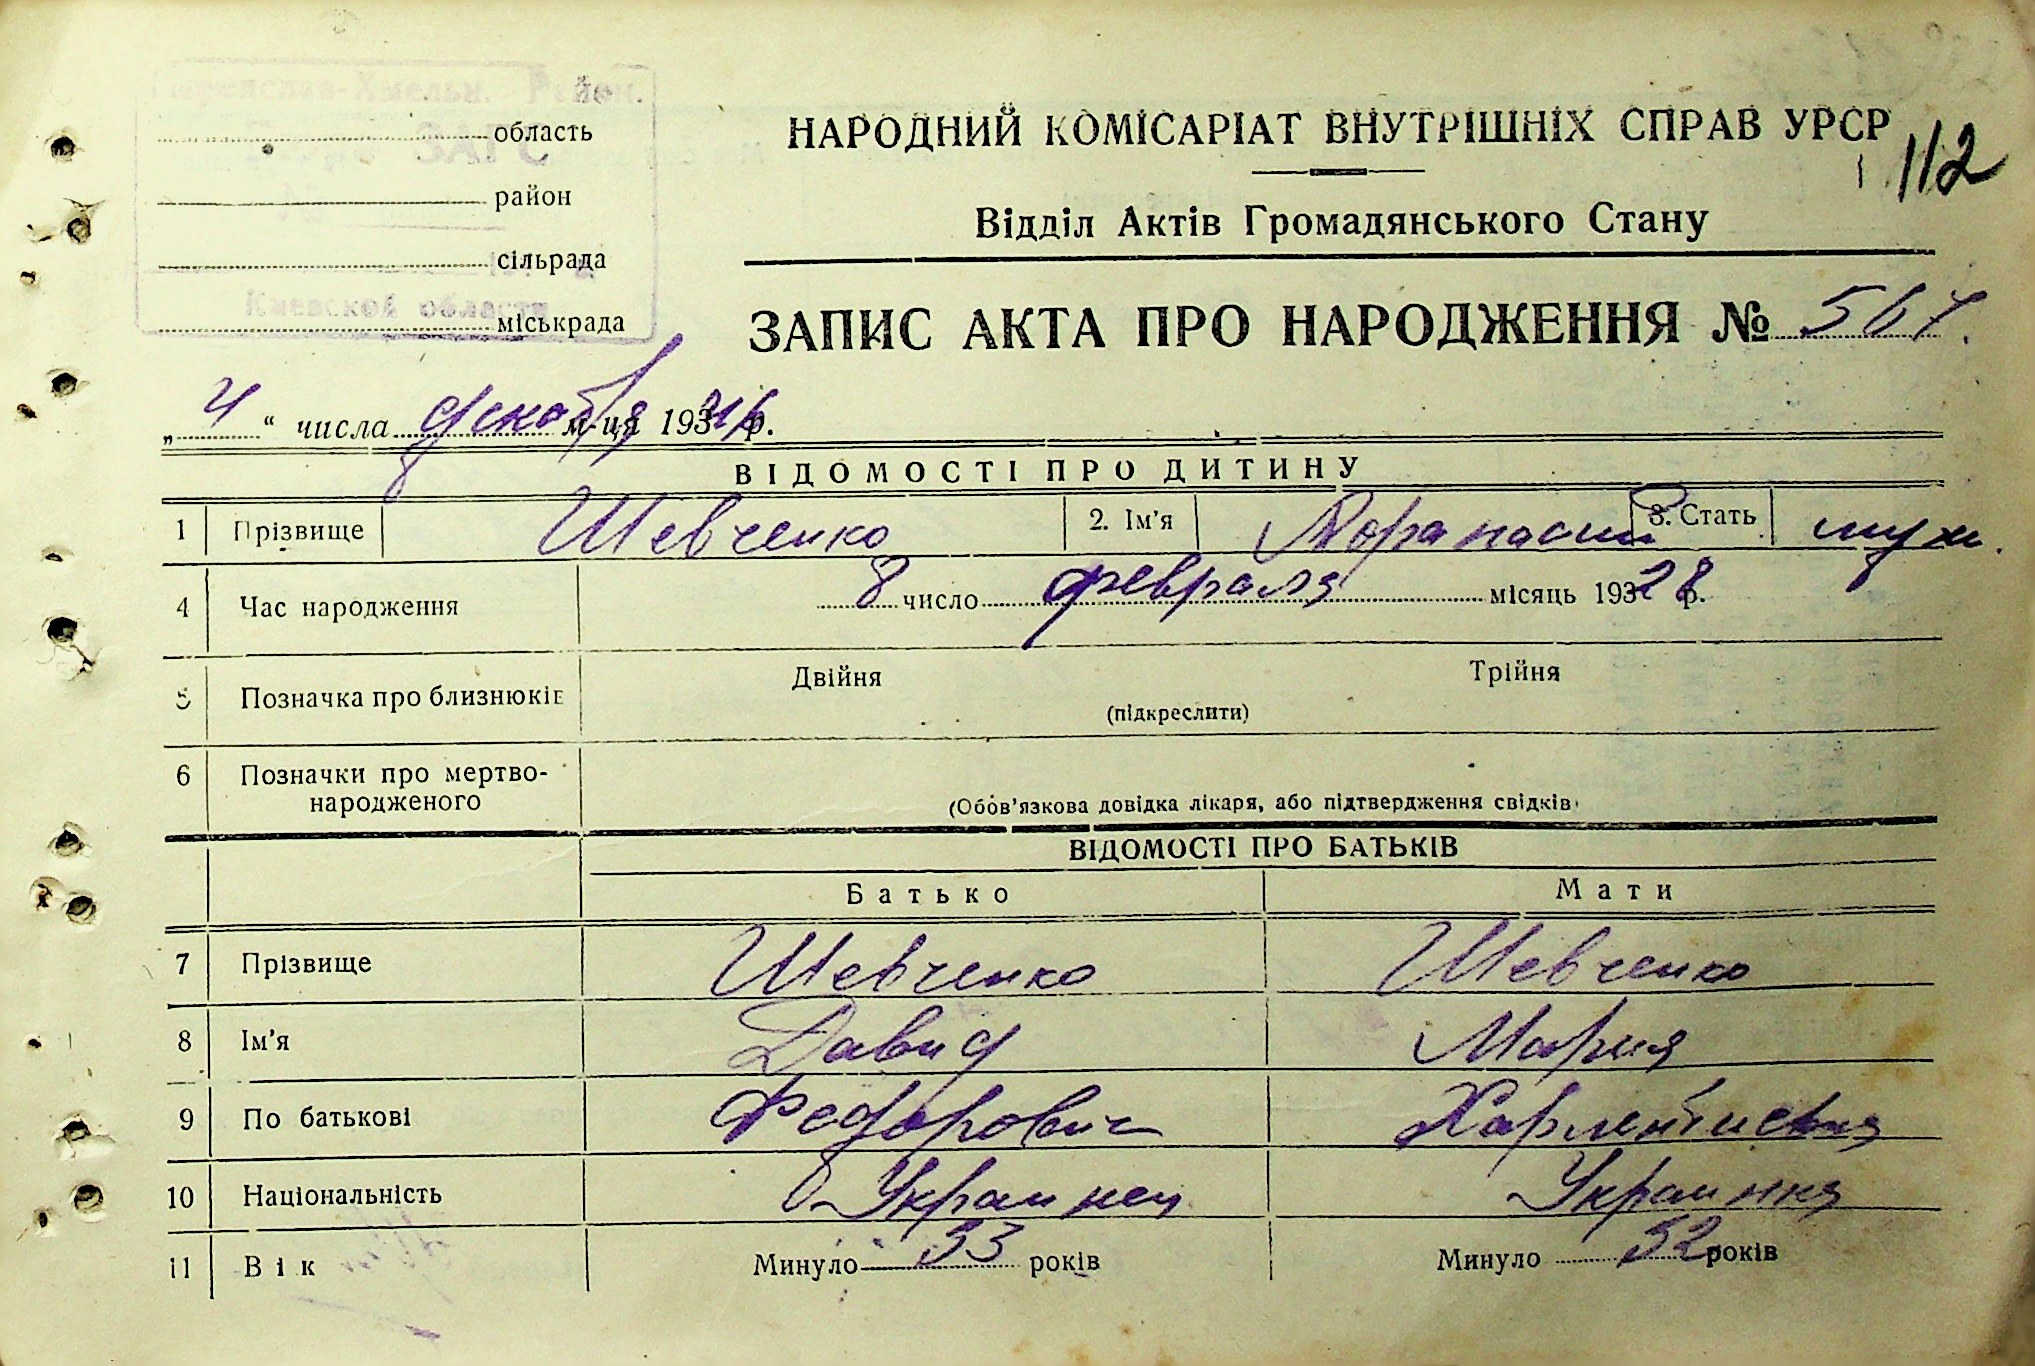 Переяслав-Хмельн. Район.
ЗАГС
Киевской области
область
район
сільрада
міськрада
НАРОДНИЙ КОМІСАРІАТ ВНУТРІШНІХ СПРАВ УРСР
112
Відділ Актів Громадянського Стану
ЗАПИС АКТА ПРО НАРОДЖЕННЯ № 567.
„ 4 “ числа декабря м-ця 193 р.
ВІДОМОСТІ ПРО ДИТИНУ
1 Прізвище Шевченко 2. Ім'я 3. Стать муж.
4 Час народження 8 число февраля місяць 193 28 р.
5 Позначка про близнюків Двійня Трійня
(підкреслити)
6 Позначки про мертво-
народженого
(Обов'язкова довідка лікаря, або підтвердження свідків)
ВІДОМОСТІ ПРО БАТЬКІВ
Батько Мати
7 Прізвище Шевченко Шевченко
8 Ім'я Давид Мария
9 По батькові Федорович
10 Національність Украинец Украинка
11 Вік Минуло 53 років Минуло 52 років